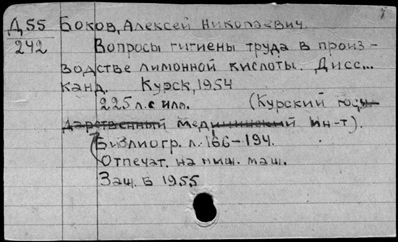 Д55 Боков, Алексей Николаевич.
242 Вопросы гигиены труда в произ-
водстве лимонной кислоты. Дисс...
канд. Курск, 1954
225 л. с илл. (Курский госу-
дарственный медицинский ин-т).
Библиогр. л. 166-194.
Отпечат. на пиш. маш.
Защ. в 1955